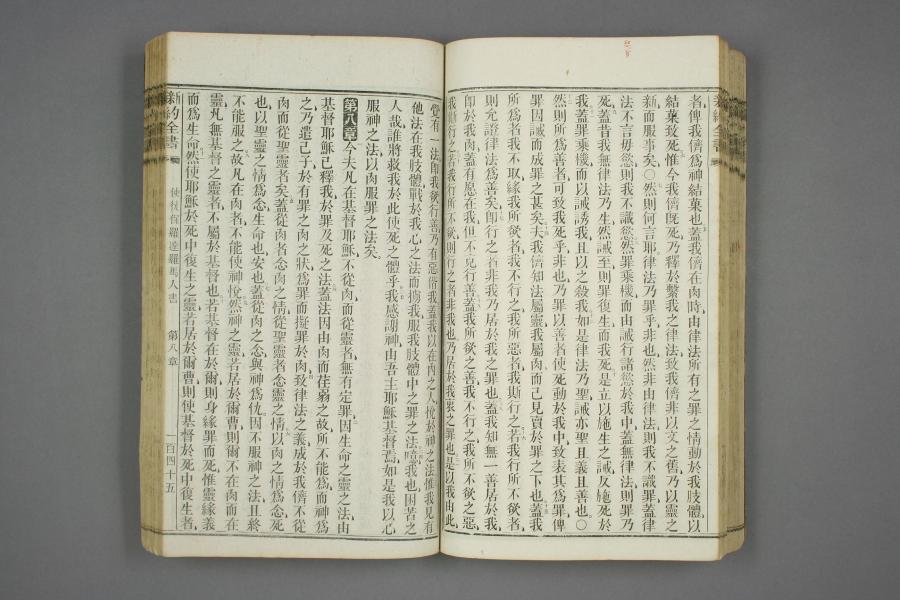 者俾我儕爲神結菓也蓋我儕在肉時由律法所有之罪之情動於我肢體以
結菓致死惟今我儕旣死乃釋於繫我之律法致我儕非以文之舊乃以靈之
新而服事矣○然則何言耶律法乃罪乎非也然非由律法則我不識罪蓋律
法不言毋慾則我不識慾然罪乘機而由誡行諸慾於我中蓋無律法則罪乃
死蓋昔我無律法乃生然誡至則罪復生而我死是立以施生之誡反施死於
我蓋罪乘機而以誡誘我且以之殺我如是律法乃聖誡亦聖且義且善也○
然則所爲善者可致我死乎非也乃罪以善者使死動於我中致表其爲罪俾
罪因誡而成罪之甚矣夫我儕知法屬靈我屬肉而己見賣於罪之下也蓋我
所爲者我不取緣我所欲者我不行之我所惡者我斯行之若我行所不欲者
則允證律法爲善矣卽行之者非我乃居於我之罪也蓋我知無一善居於我
卽於我肉蓋有愿在我但不見行善蓋我所欲之善我不行之我所不欲之惡
我斯行之若我行所不欲則行之者非我也乃居於我裏之罪也是以我由此
覺有一法卽我欲行善乃有惡偕我蓋我以在內之人悅於神之法惟我見有
他法在我肢體戰於我心之法而擄我服我肢體中之罪之法噫我也困苦之
人哉誰將救我於此使死之體乎我感謝神由吾主耶穌基督焉如是我以心
服神之法以肉服罪之法矣
第八章今夫凡在基督耶穌不從肉而從靈者無有定罪因生命之靈之法由
基督耶穌已釋我於罪及死之法蓋法因由肉而荏弱之故所不能爲而神爲
之乃遣己子於有罪之肉之狀爲罪而擬罪於肉致律法之義成於我儕不從
肉而從聖靈者矣蓋從肉者念肉之情從聖靈者念靈之情以肉之情爲念死
也以聖靈之情爲念生命也安也蓋從肉之念與神爲仇因不服神之法且終
不能服之故凡在肉者不能使神悅然神之靈若居於爾曹則爾不在肉而在
靈凡無基督之靈者不屬於基督也若基督在於爾則身緣罪而死惟靈緣義
而爲生命然使耶穌於死中復生之靈若居於爾曹則使基督於死中復生者
新約全書
使徒保羅達羅馬人書
第八章
一百四十五